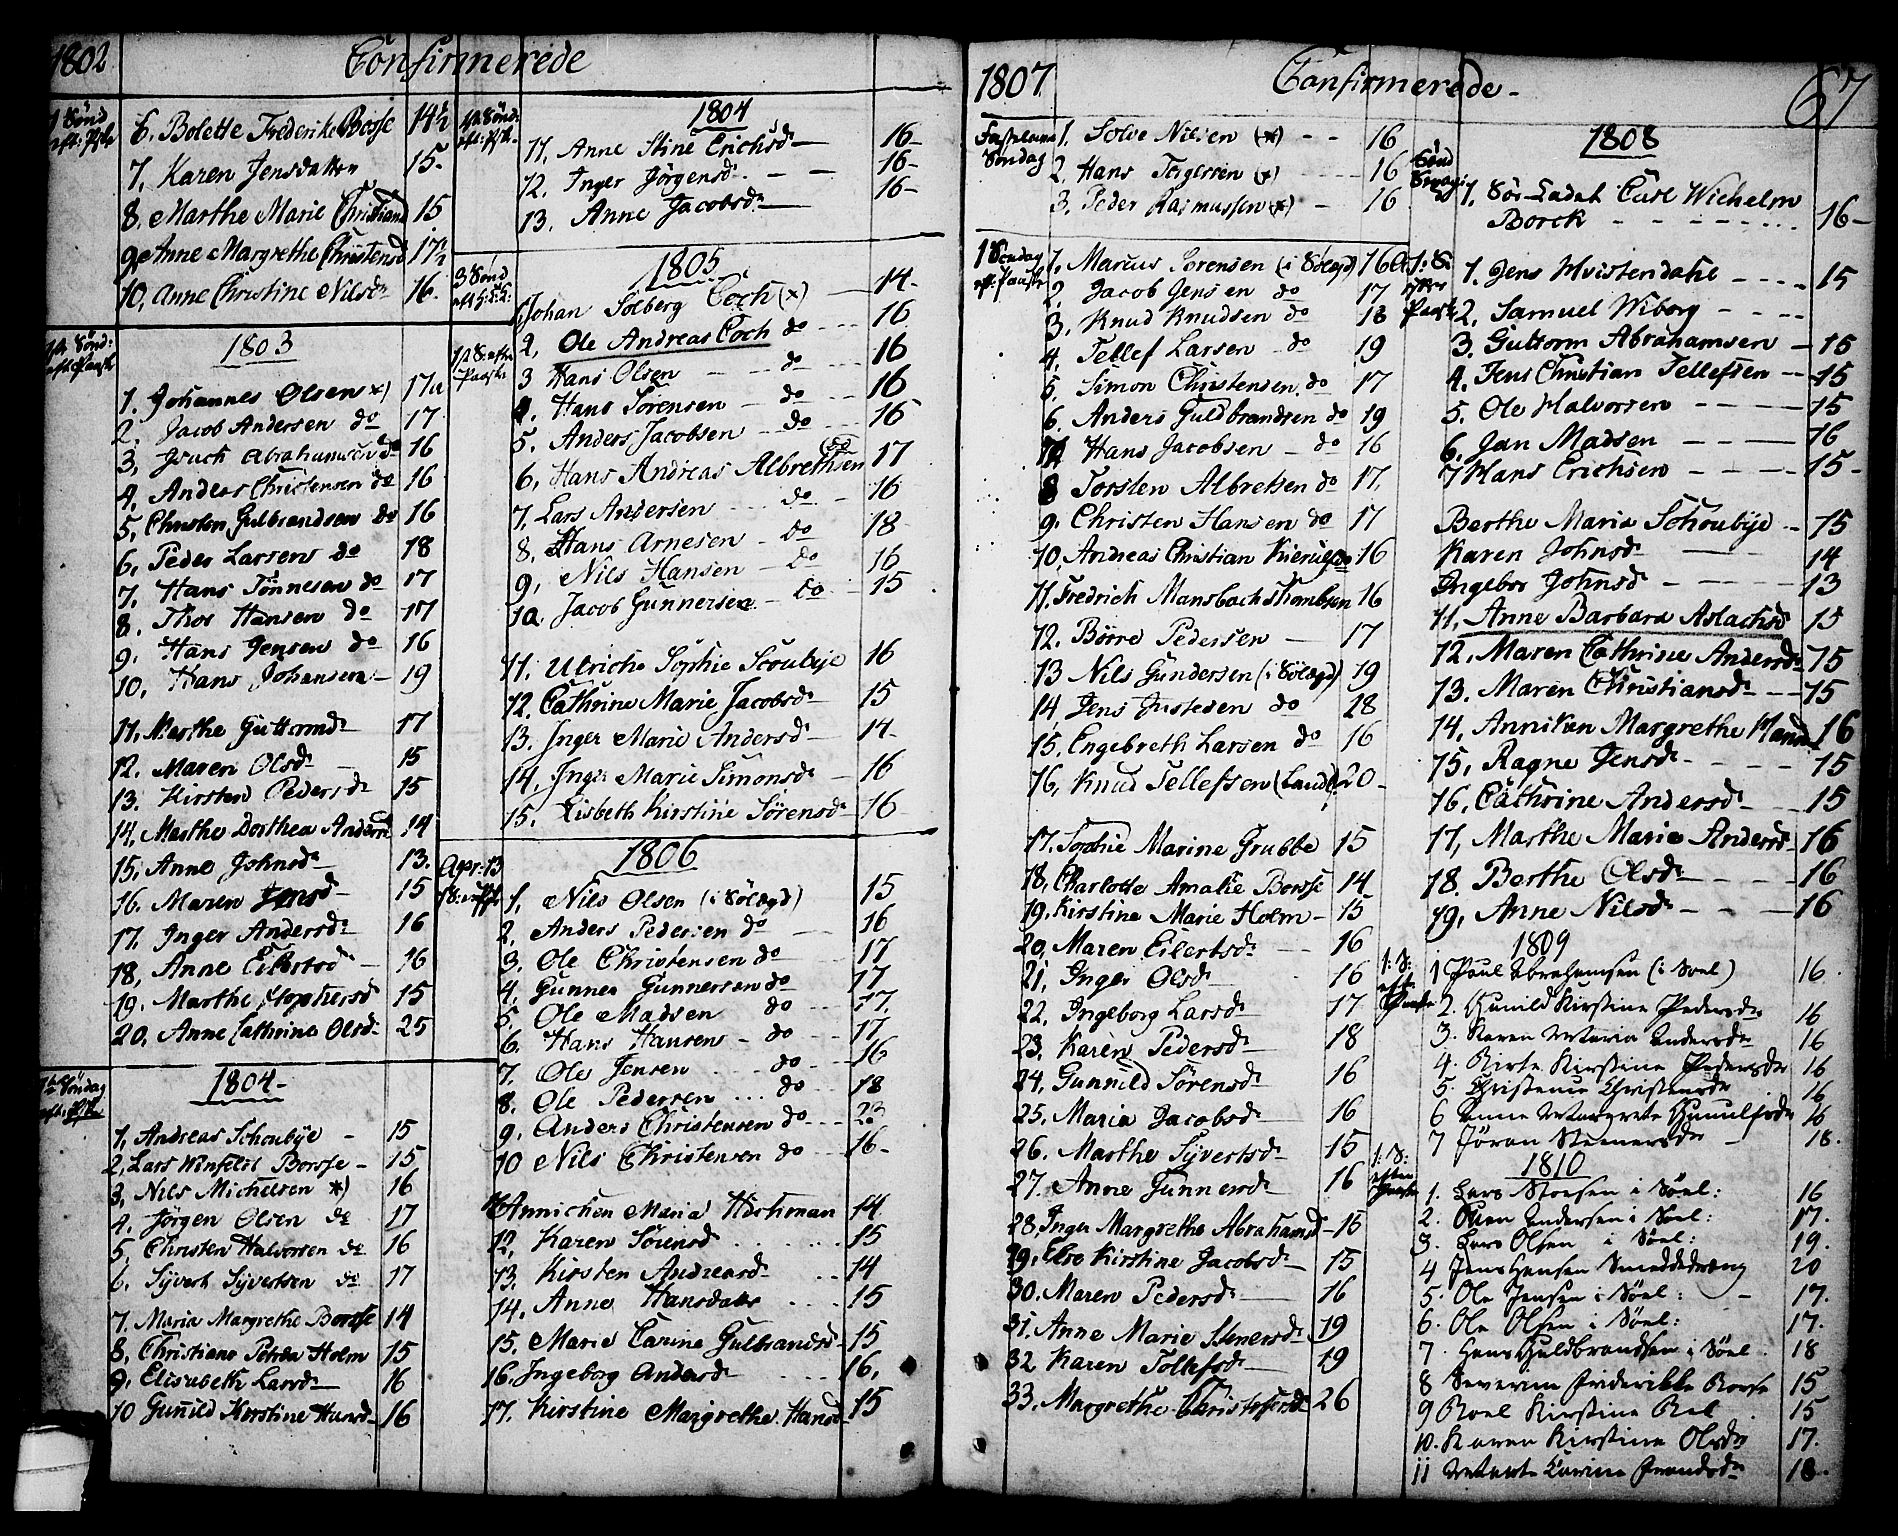 1802 Confirmerede
1 Sønd
eft: Pask
6, Bolette Frederike Borse 14½
7, Karen Jensdatter 15-
8. Marthe Marie Christiand 15
9. Anne Margrethe Christensd 17½
10, Anne Christine Nilsdr 16-
1803
1. Johannes Olsen x) 17
2, Jacob Andersen do 17
3, Isach Abrahamsen do 16
4, Anders Christensen do 16
5, Christen Gulbrandsen do 16
6, Peder Larsen do 18
7, Hans Tønnesen do 17
8. Thor Hansen do 17
9. Hans Jensen do 16
10, Hans Johansen - 19
11. Marthe Guttormdr 17
12. Maren Olsdr - 15
13. Kirsten Pedersdr 15
14, Marthe Dorthea Andersd 14
15, Anne Johnsdr 13.
16. Maren Jensd- 15
17. Inger Andersdr 16
18, Anne Eilertsd - 16
19. Marthe d 15
20, Anne Cathrine Olsdr 25
1804-
1, Andreas Schoubye - 15
2, Lars Winfeldt Borse - 15
3, Nils Michelsen x) 16
4. Jörgen Olsen do 17
5. Christen Halvorsen do 16
6. Syvert Syvertsen do 17
7. Maria Margrethe Borse 14
8. Christiane Petrea Holm 15
9. Elisabeth Larsdr 16
10 Gunild Kirstine Hansd- 16
1804
11, Anne Stine Erichsd- 16-
12. Inger Jörgensd. - - 16-
13. Anne Jacobsd- 16-
1805
3 Sønd
1, Johan Solberg Coch (x) 14-
2, Ole Andreas Coch do 16
3 Hans Olsen - - do 16
4. Hans Sørensen - do 16
5. Anders Jacobsen - do 16
6, Hans Andreas Albrethsen do 17
7. Lars Andersen - - do - 16
8. Hans Arnesen - do 18
9, Nils Hansen - do 16
10. Jacob Gunnersen - do 15
11. Ulriche Sophie Scoubye 16
12. Cathrine Marie Jacobsd- 15
13. Inger Marie Andersd- 14-
14, Inger Marie Simonsdr 16
15. Lisbeth Kirstine Sørensdr 16
1806
Apr: 13
1, Nils Olsen (i Sölegd) 15
2, Anders Pedersen do 16
3. Ole Christensen do - 17
4, Gunner Gunnersen do 17
5. Ole Madsen do - 17.
6. Hans Hansen - do - 17
7. Ole Jensen - do - 16
8. Ole Pedersen ... do 18
9, Anders Christensen do --- 23
10 Nils Christensen do - - 16-
Annichen Maria Hochman 14
12, Karen Sörensd ...... 15
13. Kirsten Andreasd- .. 14
14. Anne Hansdatr .... 15
15. Marie Carine Gulbrandsd- 15
16. Ingeborg Andersd ..... 16,
17. Kirstine Margrethe Hansd 15
1807 Confirmerede- 67
Fastelavns
Søndag
1. Solve Nilsen (x) - - 16
2. Hans Torgersen (x) ---- 16
3. Peder Rasmussen (x) - 16
1 Søndag
eft: Paaske
1. Marcus Sörensen (i Sölegd) 16
2, Jacob Jensen do 17
3. Knud Knudsen do 18
4. Tellef Larsen - do 19
5. Simon Christensen do 17
6. Anders Guldbrandsen do 19
7. Hans Jacobsen - do 16
8 Torsten Albretsen do 17.
9. Christen Hansen do 17
10. Andreas Christian Kierulf do 16
11. Fredrich Mansbach Thomesen 16
12. Börre Pedersen - 17
13 Nils Gundersen (i Sölegd) 19
14, Jens Justesen do 28
15, Engebreth Larsen do 16
16, Knud Tellefsen (Land) 20-
17. Sophie Marine Grubbe 15
18, Charlotte Amalie Borse 14
19. Kirstine Marie Holm - 15
20. Maren Eilertsd- 16
21, Inger Olsd- 16
22. Ingeborg Larsd- 17
23. Karen Pedersd- 18
24. Gunnild Sörensd- 16
25. Maria Jacobsdr 16
26. Marthe Syvertsd- 15
27. Anne Gunnersd- 16
28. Inger Margrethe Abrahamsd- 15
29. Else Kirstine Jacobsd- 15
30. Maren Pedersd- 16
31. Anne Marie Stenersdr 19
32. Karen Tollefsd- 19
33. Margrethe Christofersd 26
1808
1, Söe-Cadet Carl Wichelm
Borck - - - - - - - - - 16-
1. Jens Hvistendahl - - - - 15
2. Samuel Wiborg - - - -
3. Guttorm Abrahamsen - 15
4. Jens Christian Tellefsen -- 15
5. Ole Halvorsen - - - - 15
6. Jan Madsen - - - - 16
7 Hans Erichsen - - - - 15-
Berthe Maria Schoubye - - 15
Karen Johnsd - - - 14
Ingebor Johnsd - - - - 13
11, Anne Barbara Aslachsd 15
12. Maren Cathrine Andersd- 15
13. Maren Christiansd - - 15
14. Anniken Margrethe 16
15, Ragne Jensd- - - - - 15
16, Cathrine Andersd- - - 15
17, Marthe Maria Andersd- 16
18. Berthe Olsd- - - - 16
19, Anne Nilsd- - - - 16
1809
1 Poul Abrahamsen (i Soel) 16.
2. Gunild Kirstine Pedersdr 16
3. Karen Maria Andersdr 16
4. Kirte Kirstine Pedersdr 16
5. Christence Christensdr 16
6 Anne Margrete Gunulfsdr 16
7 Jøran Stenersdr - 18.
1810
1. Lars Noesen i Söel: 16
2. Sven Andersen i Söel: 17.
3. Lars Olsen i Söel: 19.
4 Jens Hansen Smeddedreng 20
5. Ole Jensen i Söel: - 17.
6. Ole Olsen i Söel: 17.
7. Hans Guldbrandsen i Söel. 18
8 Severine Friderikke Borse 15
9 Roel Kirstine . 15
10. Karen Kirstine Olsdr 17.
11 Marte Karine dr 18.